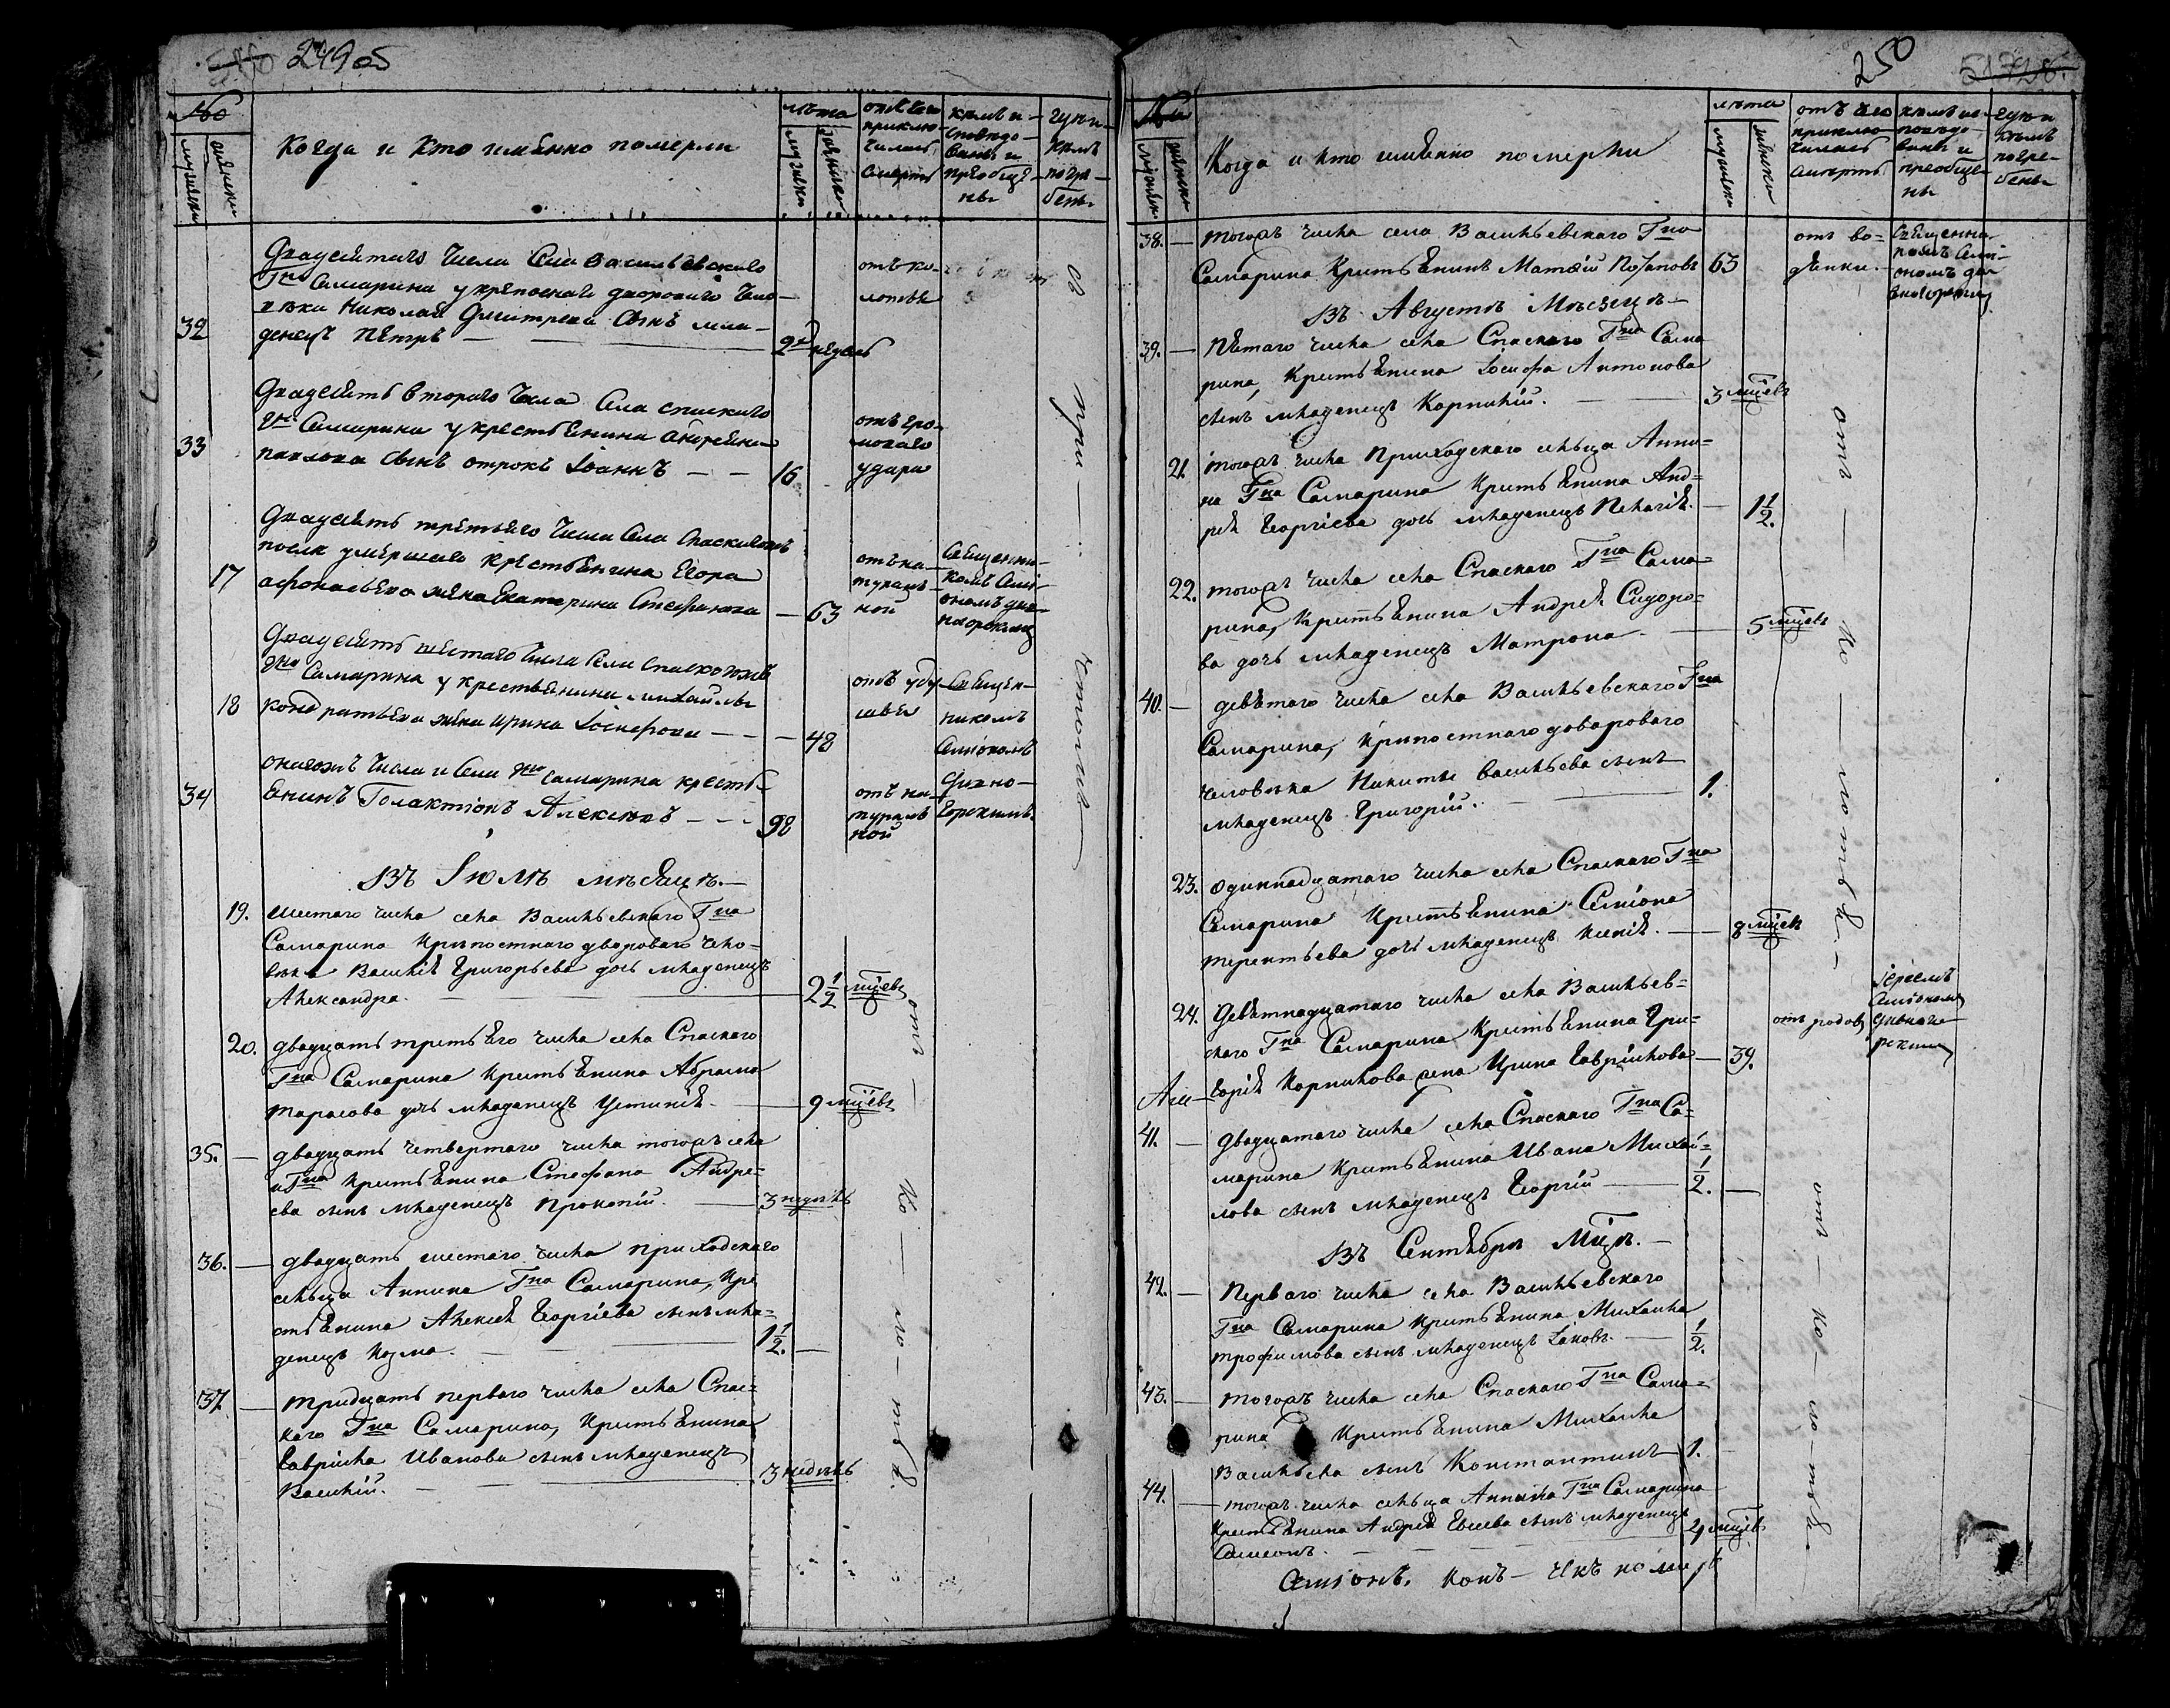 249об
№
Когда и кто именно померли
лѣта
мужеска
женска
отъ чего приклю-
чилась
смерть
кѣмъ и-
сповѣдо-
ваны и
преобще-
ны
гдѣ и
кѣмъ
погре-
бены
32
Двадсятаго числа Села Васильевскаго
Гна Самарина у крепоснаго двороваго чело-
века Николая Дмитрева сынъ мла-
денецъ Петръ
2 недель
отъ ко-
лотья
33
Двадсять втораго числа Села спаскаго
Гна Самарина у крестьенина Андреяна
павлова сынъ отрокъ Іоаннъ
16
отъ гро-
моваго
удара
17
Двадсять третьяго числа Села Спаскагожъ
послѣ умершаго крестьенина Егора
афонасьева жена Екатерина Стефанова
63
отъ на-
тураль-
ной
Священни-
комъ Симі-
ономъ Див-
ногорскимъ
18
Двадсять шестаго числа Села Спаскогожъ
Гна Самарина у крестьенина михайлы
кондратьева жена ирина Іосифова
48
отъ уду-
шья
Священ-
никомъ
Симіономъ
Дивно-
горскимъ
34
онагожъ числа и Села Гна Самарина кресть-
енинъ Галактіонъ Алексѣевъ
98
отъ на-
тураль
ной
Въ Іюлѣ мѣсяцѣ.
19.
шестаго числа села Васильевскаго Гна
Самарина крѣпостнаго двороваго чело-
века Василія Григорьева дочь младенецъ
Александра.
2 1/2 мцевъ
20.
двадцать третьего числа села Спаскаго
Гна Самарина крестьенина Абрама
тарасова дочь младенецъ Устинія.
9 мцевъ
35.
двадцать четвертаго числа тогожъ села
и Гна крестьенина Стефана Андре=
ева сынъ младенецъ Прокопій.
3 недѣль
36.
двадцать шестаго числа приходскаго
сельца Аннина Гна Самарина, Кре
стьенина Алексія Георгіева сынъ мла=
денецъ Козма.
1 1/2.
37.
тридцать перваго числа села Спас=
каго Гна Самарина, Крестьенина
Гавріила Иванова сынъ младенецъ
Василій.
3 недѣль
отъ — ко — ло — тья.
250
Когда и кто именно померли
лѣта
мужеска
женска
отъ чего
приклю
чилась
смерть
кѣмъ ис-
повѣдо-
ваны и
преобще-
ны
гдѣ и
кѣмъ
погре-
бены
38.
тогожъ числа села Васильевскаго Гна
Самарина Крестьенинъ Матѳій Потаповъ
63
отъ во-
дянки.
Священни-
комъ Симі-
ономъ Ди-
вногорским
Въ Августѣ Мѣсяцѣ
39.
Пятаго числа села Спаскаго Гна Сама
рина, Крестьенина Іосифа Антонова
сынъ младенецъ Корнилій.
3 мцевъ
21.
тогожъ числа Приходскаго сельца Анни=
на Гна Самарина Крестьенина Анд=
рея Георгіева дочь младенецъ Пелагія.
1 1/2.
22.
тогожъ числа села Спаскаго Гна Сама=
рина, Крестьенина Андрея Сидоро=
ва дочь младенецъ Матрона.
5 мцевъ
40.
девятаго числа села Васильевскаго Гна
Самарина, Крѣпостнаго двороваго
человѣка Никиты Васильева сынъ
младенецъ Григорій.
1.
23.
одиннадцатаго числа села Спаскаго Гна
Самарина Крестьенина Семіона
терентьева дочь младенецъ Ксенія.
8 мцевъ
24.
Девятнадцатаго числа села Васильев=
скаго Гна Самарина Крестьенина Гри=
горія Корнилова жена Ирина Гаврилова
39.
отъ родовъ
Іереемъ
Симіономъ
Дивного
рскимъ
41.
Двадцатаго числа села Спаскаго Гна Са=
марина Крестьенина Ивана Михай=
лова сынъ младенецъ Георгій
1/2.
Въ Сентябрѣ Мцѣ.
42.
Перваго числа села Васильевскаго
Гна Самарина Крестьенина Михаила
трофимова сынъ младенецъ Іаковъ.
1/2.
43.
тогожъ числа села Спаскаго Гна Сама=
рина Крестьенина Михаила
Васильева сынъ Константинъ
1.
44.
тогожъ числа сельца Аннина Гна Самарина
Крестьенина Андрея Евсева сынъ младенецъ
Симеонъ.
4 мцевъ
отъ — ко — лотья.
отъ — ко — ло — тья